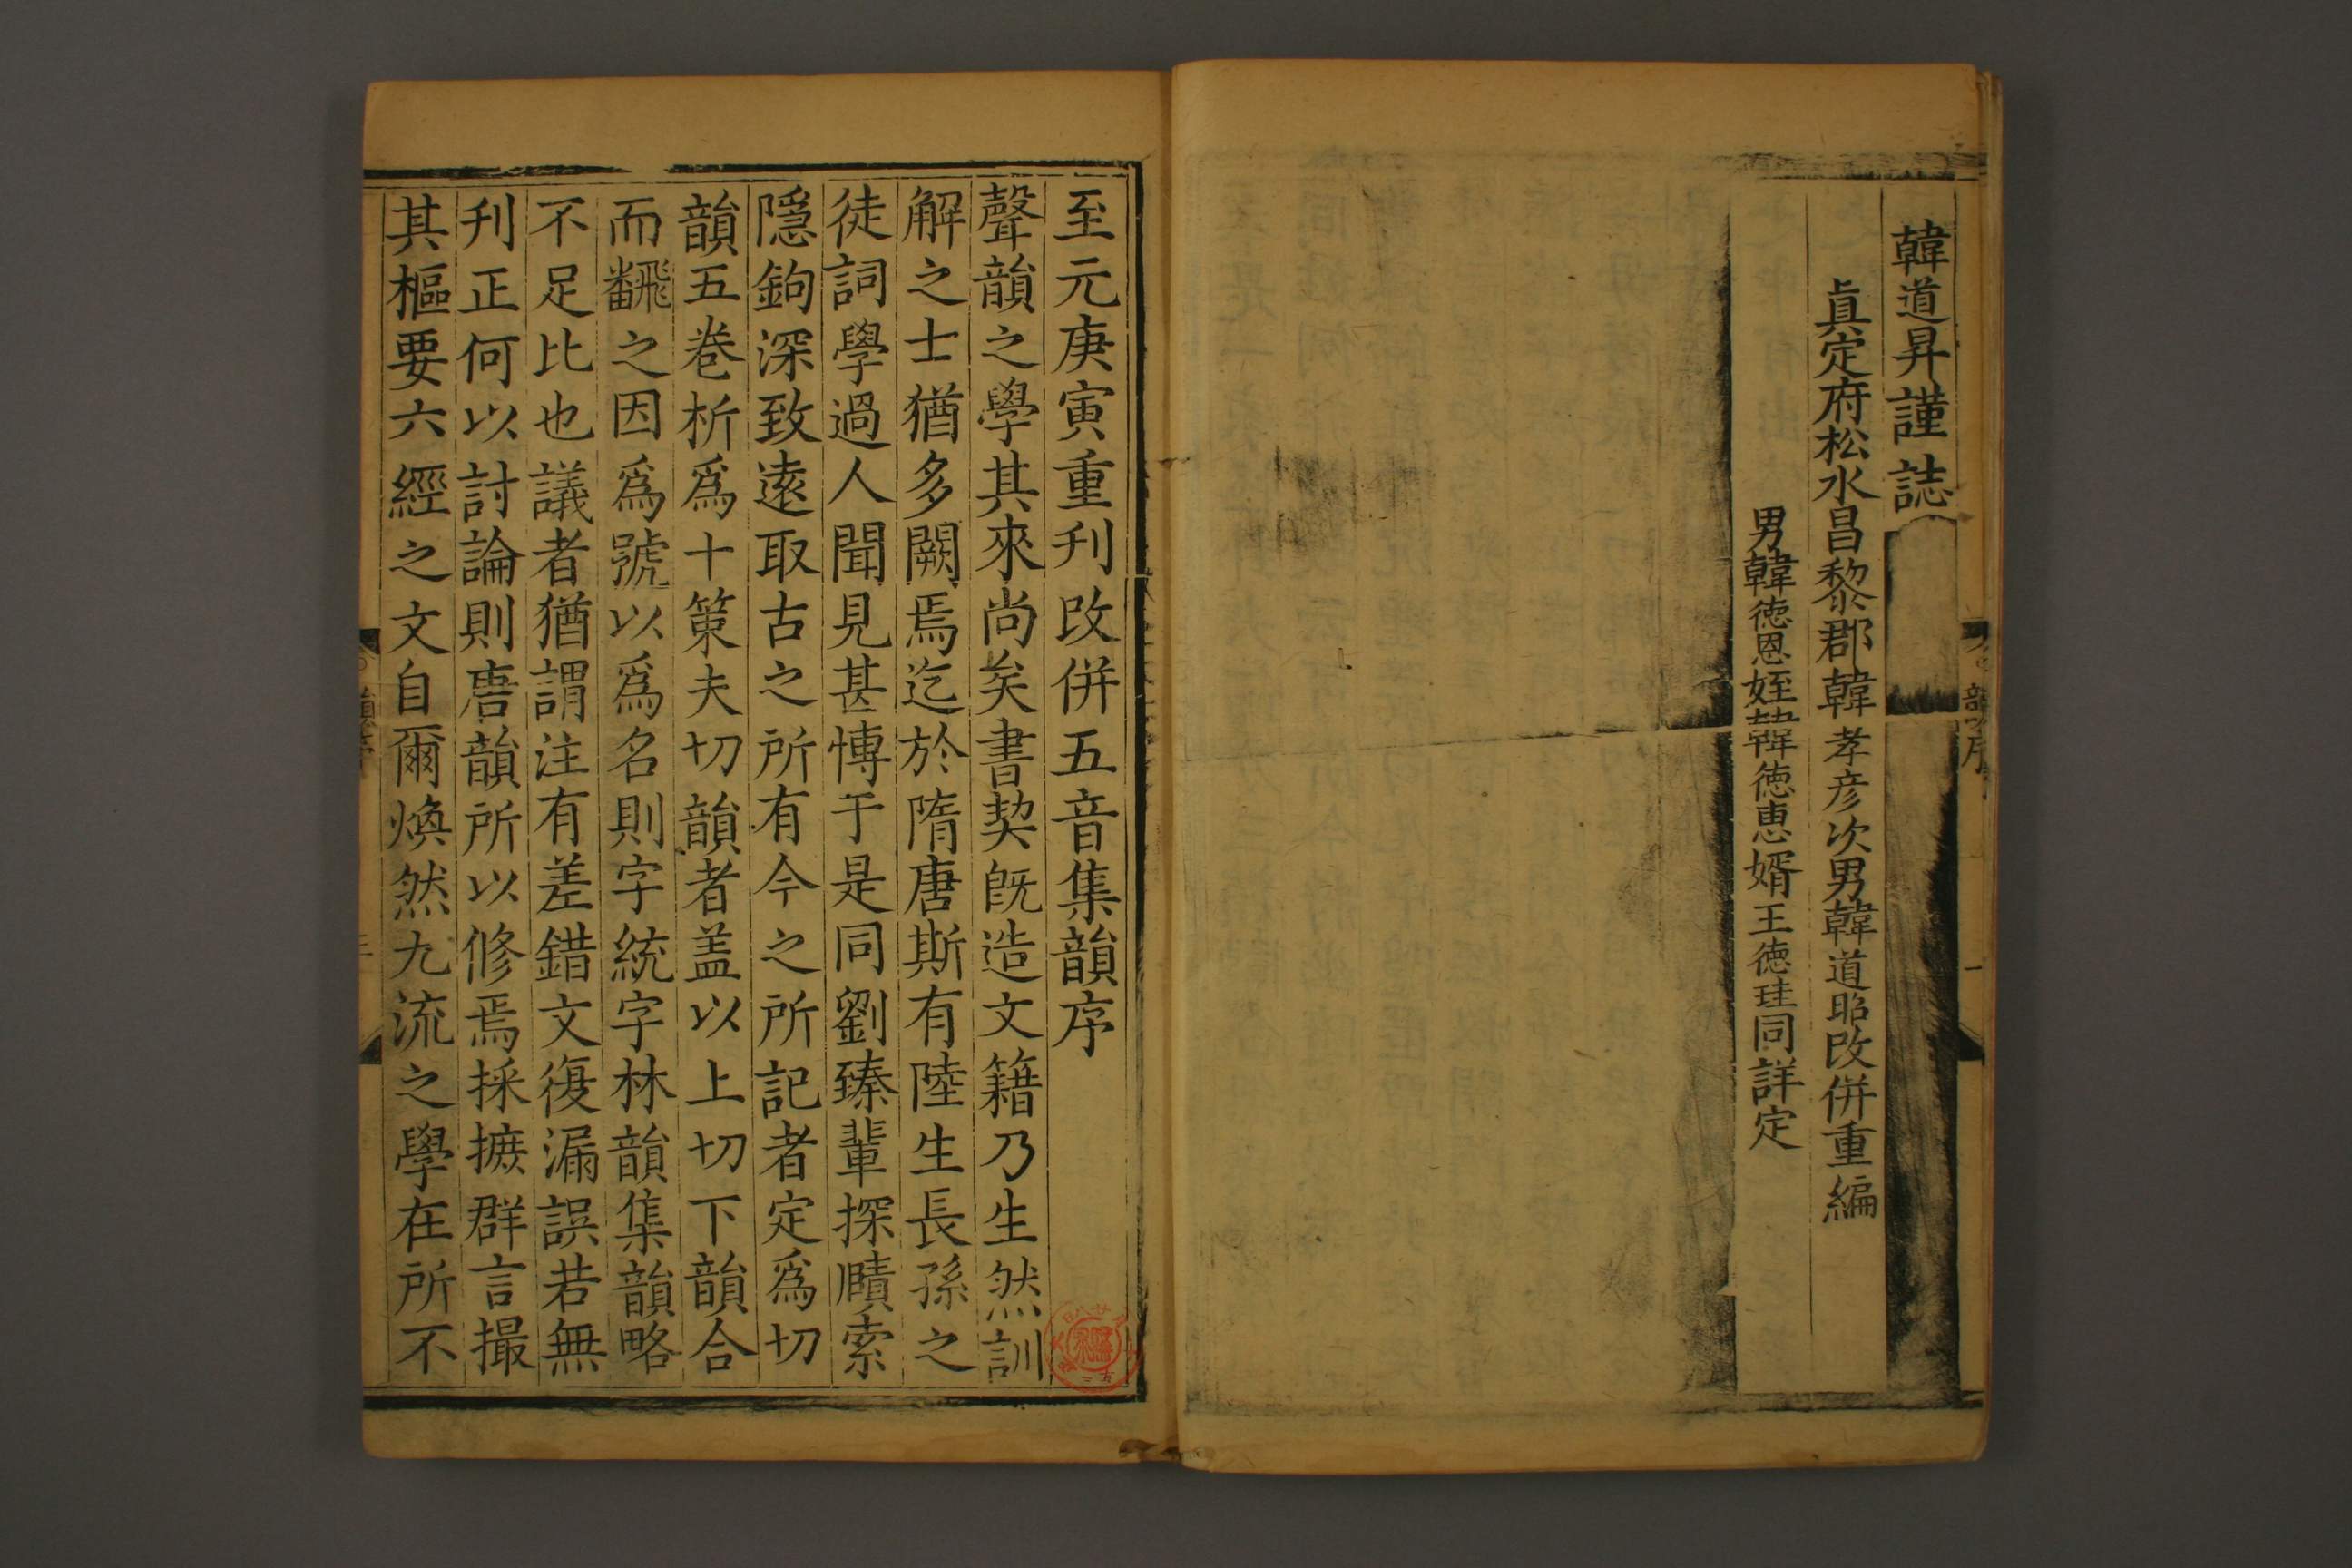 韓道昇謹誌
眞定府松水昌黎郡韓孝彦次男韓道昭改併重編
男韓德恩姪韓德惠婿王德珪同詳定
至元庚寅重刋改併五音集韻序
聲韻之學其來尚矣書契旣造文籍乃生然訓
解之士猶多闕焉迄於隋唐斯有陸生長孫之
徒詞學過人聞見甚愽于是同劉臻輩探賾索
隱鉤深致遠取古之所有今之所記者定爲切
韻五巻析爲十策夫切韻者盖以上切下韻合
而飜之因爲號以爲名則字統字林韻集韻略
不足比也議者猶謂注有差錯文復漏誤若無
刋正何以討論則唐韻所以修焉採摭群言撮
其樞要六經之文自爾煥然九流之學在所不